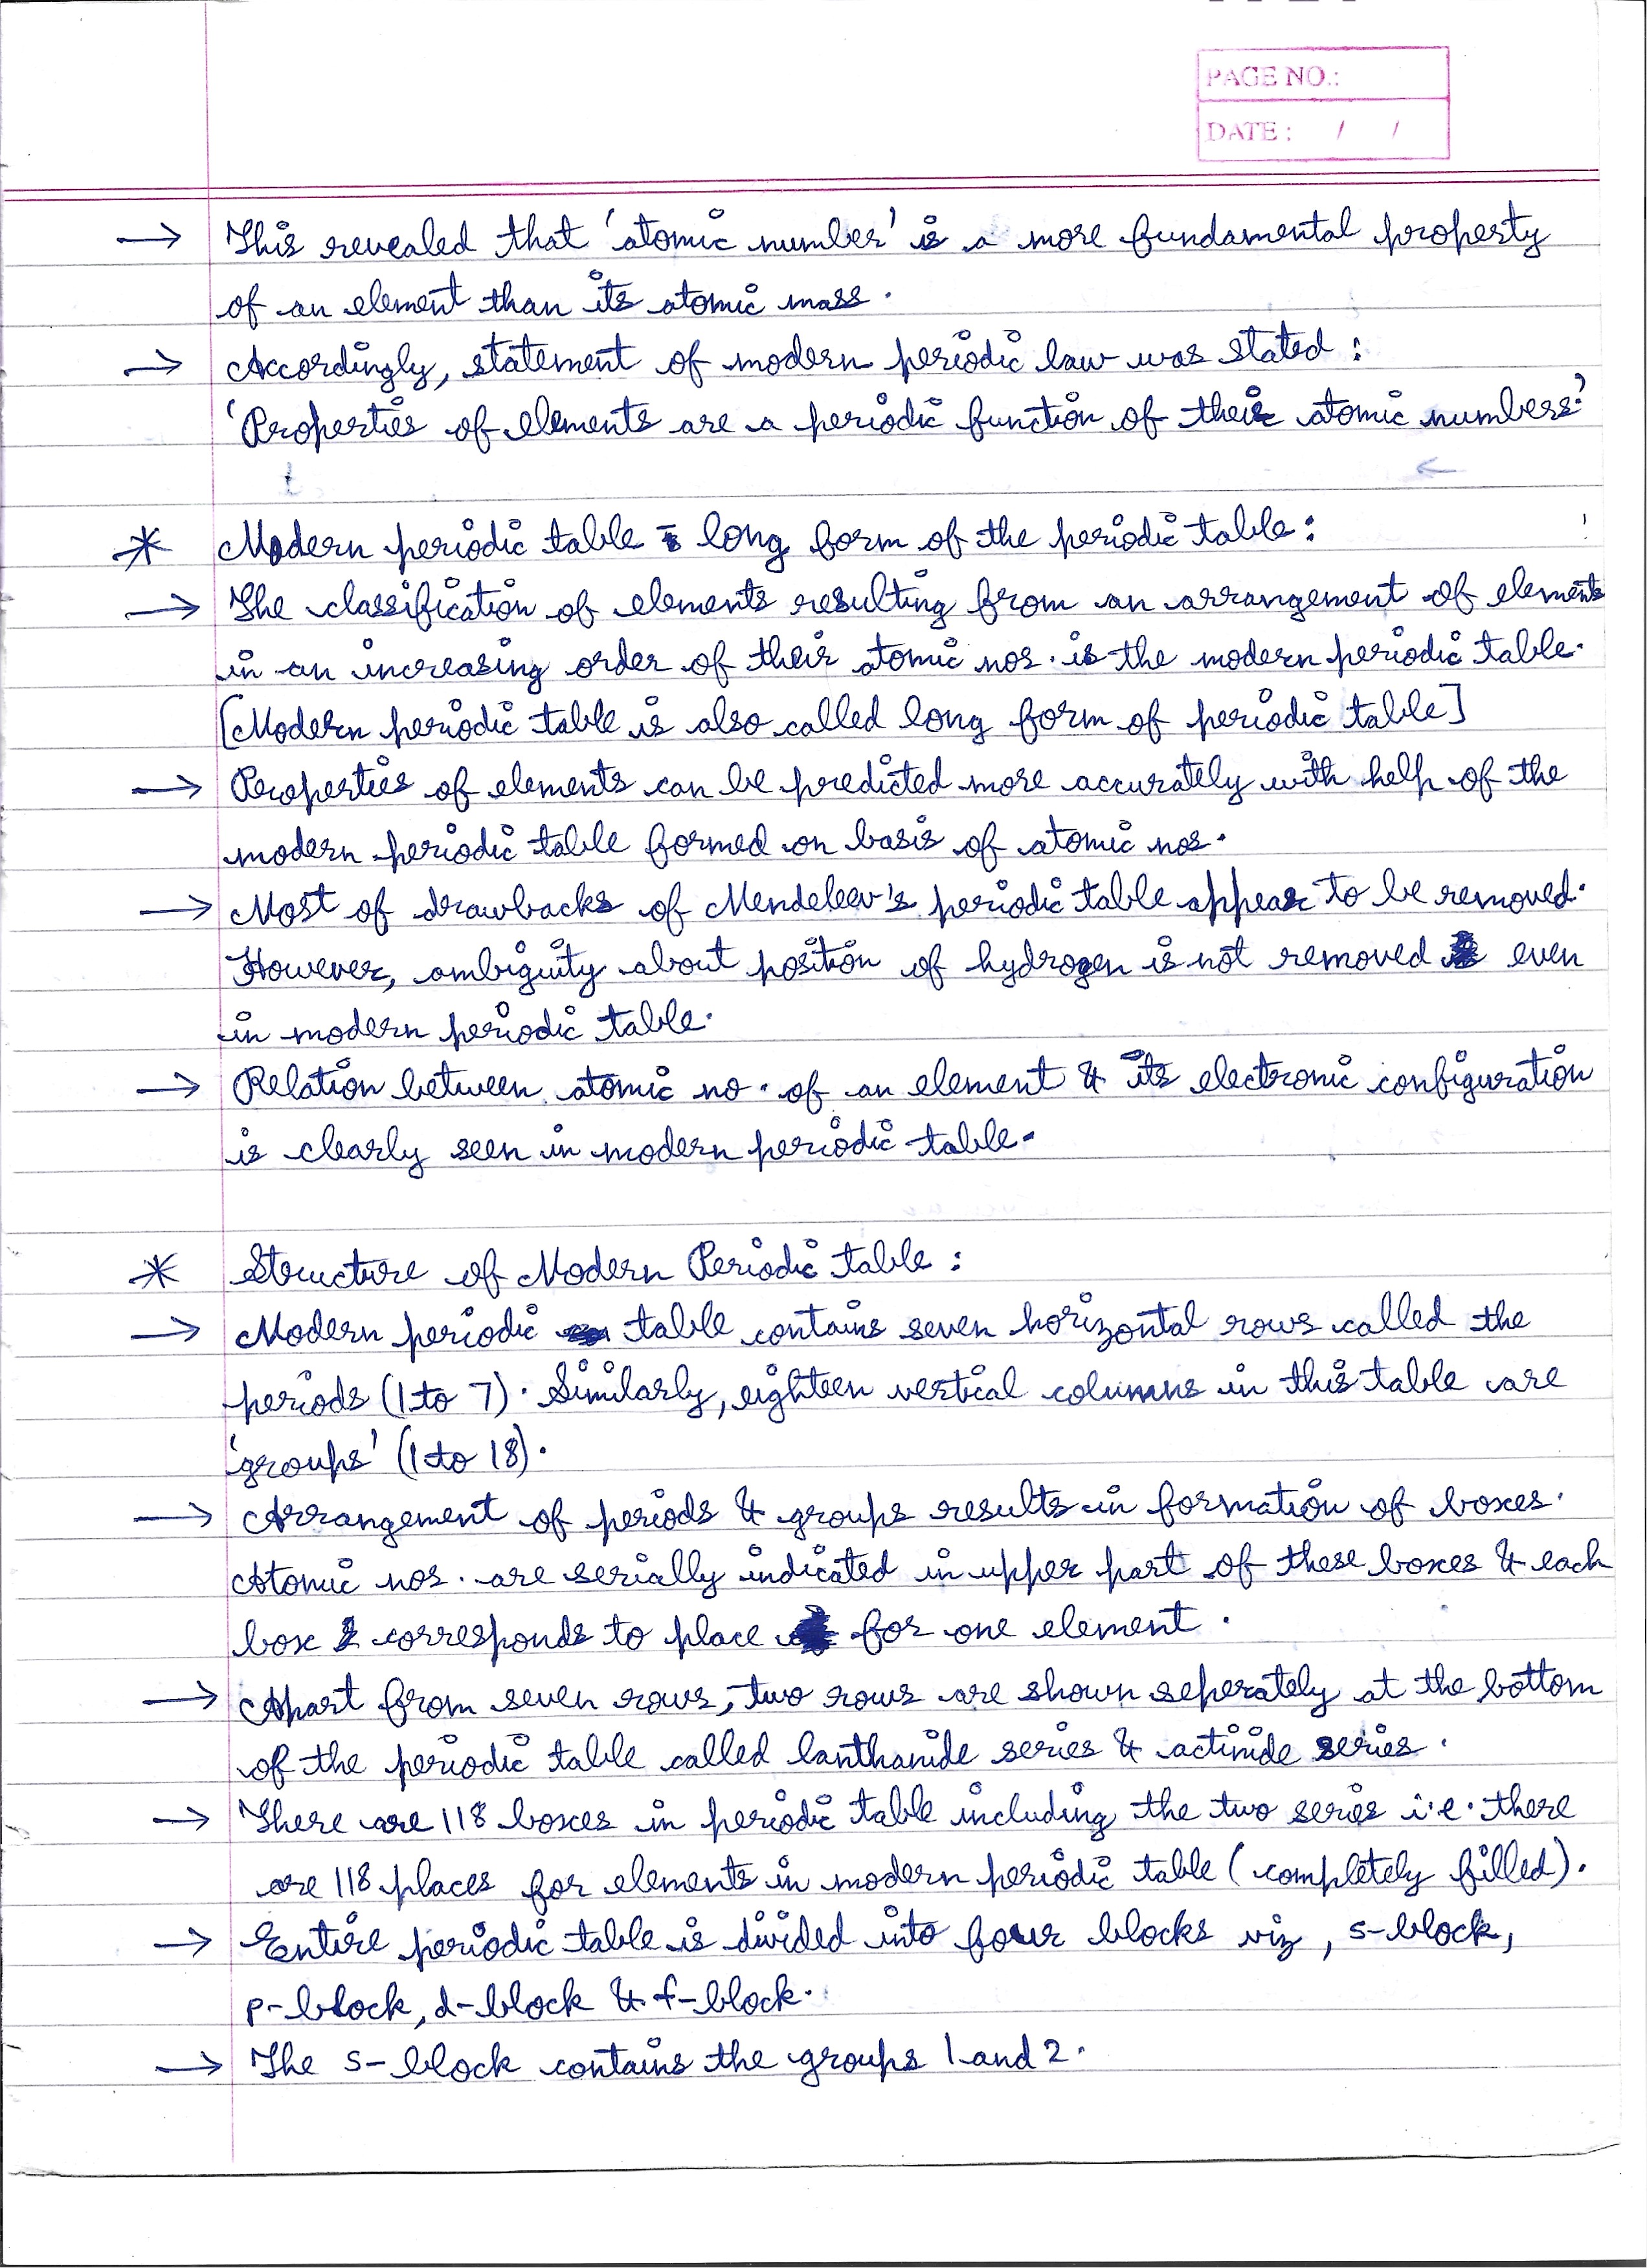 PAGE NO.:
DATE : / /
→ This revealed that 'atomic number' is a more fundamental property
of an element than its atomic mass.
→ Accordingly, statement of modern periodic law was stated :
'Properties of elements are a periodic function of their atomic numbers.'
* Modern periodic table - long form of the periodic table :
→ The classification of elements resulting from an arrangement of elements
in an increasing order of their atomic nos. is the modern periodic table.
[Modern periodic table is also called long form of periodic table]
→ Properties of elements can be predicted more accurately with help of the
modern periodic table formed on basis of atomic nos.
→ Most of drawbacks of Mendeleev's periodic table appear to be removed.
However, ambiguity about position of hydrogen is not removed even
in modern periodic table.
→ Relation between atomic no. of an element & its electronic configuration
is clearly seen in modern periodic table.
* Structure of Modern Periodic table :
→ Modern periodic table contains seven horizontal rows called the
periods (1 to 7). Similarly, eighteen vertical columns in this table are
'groups' (1 to 18).
→ Arrangement of periods & groups results in formation of boxes.
Atomic nos. are serially indicated in upper part of these boxes & each
box corresponds to place for one element.
→ Apart from seven rows, two rows are shown seperately at the bottom
of the periodic table called lanthanide series & actinide series.
→ There are 118 boxes in periodic table including the two series i.e. there
are 118 places for elements in modern periodic table (completely filled).
→ Entire periodic table is divided into four blocks viz, s-block,
p-block, d-block & f-block.
→ The s-block contains the groups 1 and 2.